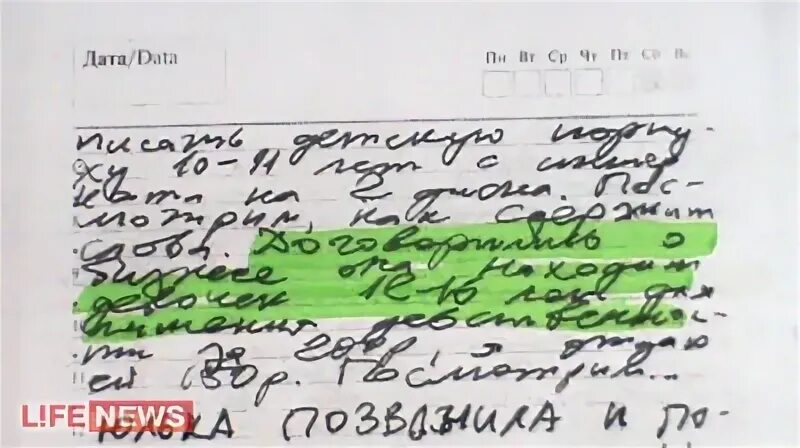 Дата/Data
Пн Вт Ср Чт Пт Сб Вс
писать детскую порну-
ху 10-11 лет с
на 2 Пос-
мотрим, как сдержит
слова. Договорились о
бизнесе она находит
девочек лет для
девственнос-
ти за 200р, я отдаю
ей 150р. Посмотрим...
ЮЛЬКА ПОЗВОНИЛА И ПО-
L!FE NEWS